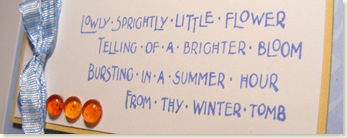 Lowly·Sprightly·Little·Flower
Telling·of·a·Brighter·Bloom
Bursting·in·a·Summer·Hour
From·Thy·Winter·Tomb